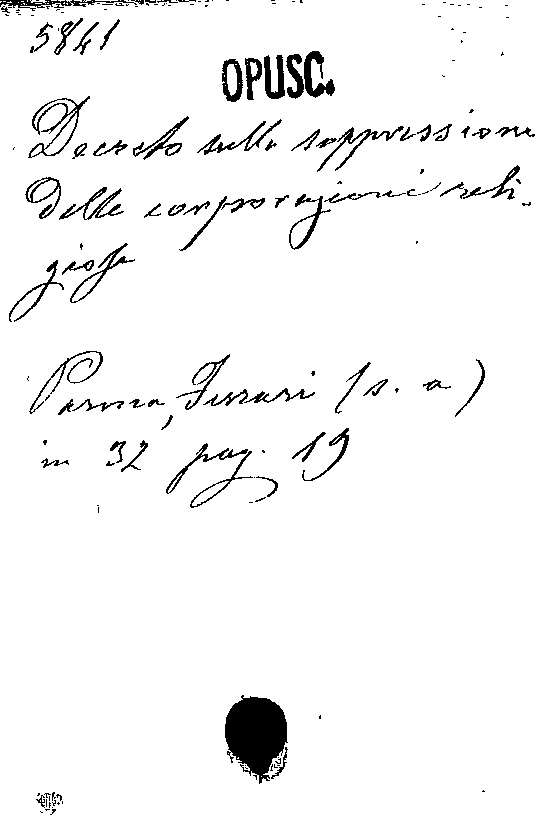 5841
OPUSC.
Decreto sulla soppressione
delle corporazioni reli-
giose
Parma, Ferrari (s. a)
in 32 pag. 19